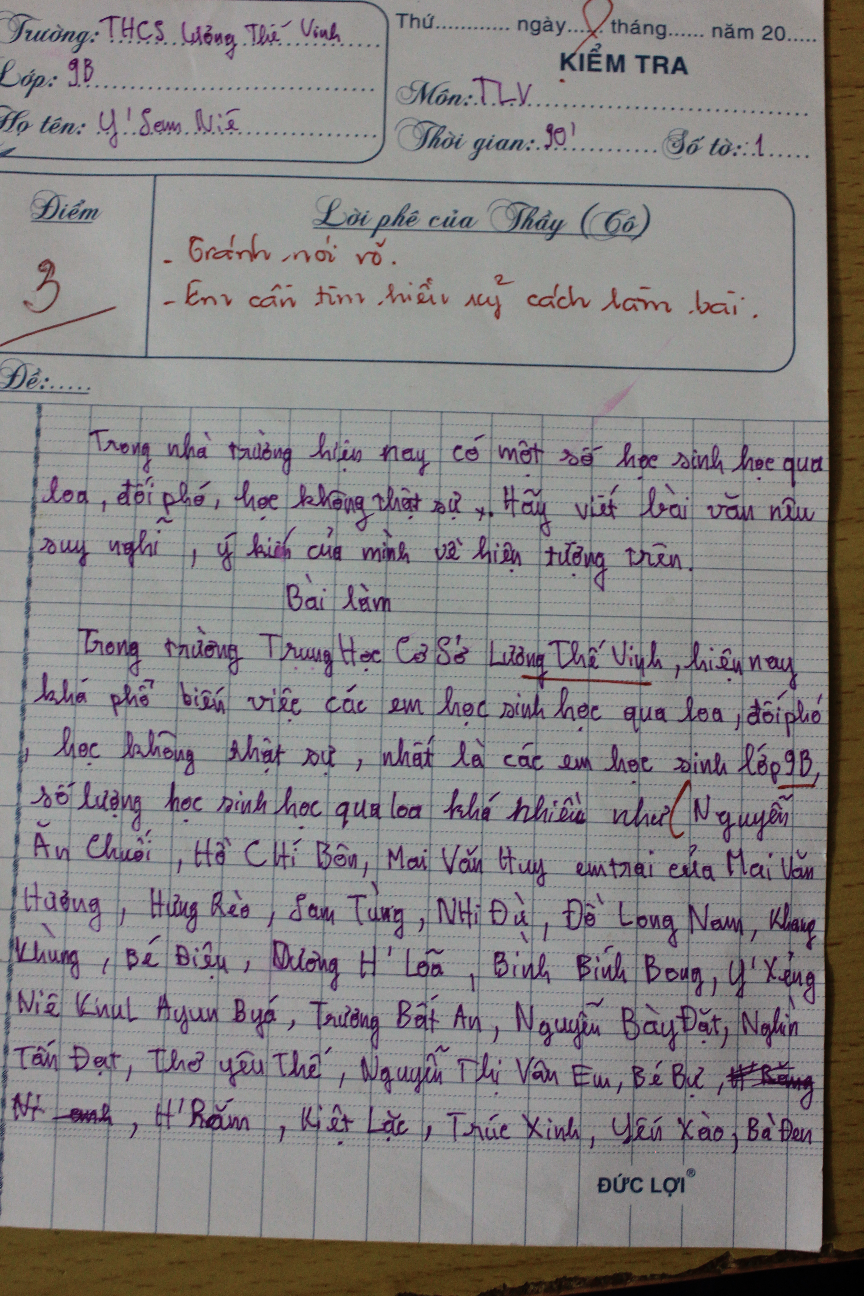 Trường: THCS Lường Thế Vinh
Lớp: 9B
Họ tên: Y' Sam Niê
Thứ............ ngày...... tháng...... năm 20.....
KIỂM TRA
Môn: TLV
Thời gian: 90' Số tờ: 1
Điểm
3
Lời phê của Thầy (Cô)
- Tránh nói rõ.
- Em cần tìm hiểu kỹ cách làm bài.
Đề:.....
Trong nhà trường hiện nay có một số học sinh học qua
loa, đối phó, học không thật sự. Hãy viết bài văn nêu
suy nghĩ, ý kiến của mình về hiện tượng trên.
Bài làm
Trong trường Trung Học Cơ Sở Lương Thế Vinh, hiện nay
khá phổ biến việc các em học sinh học qua loa, đối phó
, học không thật sự, nhất là các em học sinh lớp 9B,
số lượng học sinh học qua loa khá nhiều như (Nguyễn
Ăn Chuối, Hồ CHí Bôn, Mai Văn Huy em trai của Mai Văn
Hường, Hưng Rèo, Sam Tùng, NHi Đù, Đồ Long Nam, Khang
Khùng, Bé Điệu, Dương H' Loã, Bình Bính Bong, Y' Xẻng
Niê Knul Ayun Byá, Trương Bất An, Nguyễn Bày Đặt, Nghìn
Tấn Đạt, Thơ yêu Thế, Nguyễn Thị Vân Em, Bé Bự,
, H' Rắm, Kiệt Lặc, Trúc Xinh, Yến Xào, Bà Đen
ĐỨC LỢI®